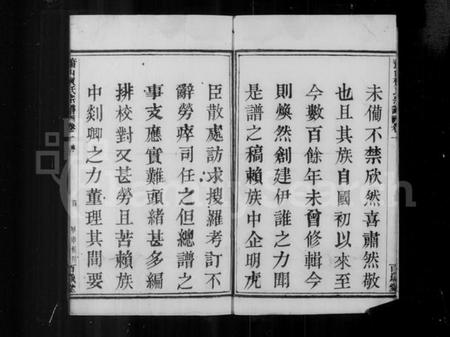 未備不禁欣然喜肅然敬
也且其族自國初以來至
今數百餘年未曾修輯今
則煥然創建伊誰之力聞
是譜之稿賴族中企明虎
臣散處訪求搜羅考訂不
辭勞瘁司任之但總譜之
事支應實難頭緒甚多編
排校對又甚勞且苦賴族
中剡卿之力董理其間要